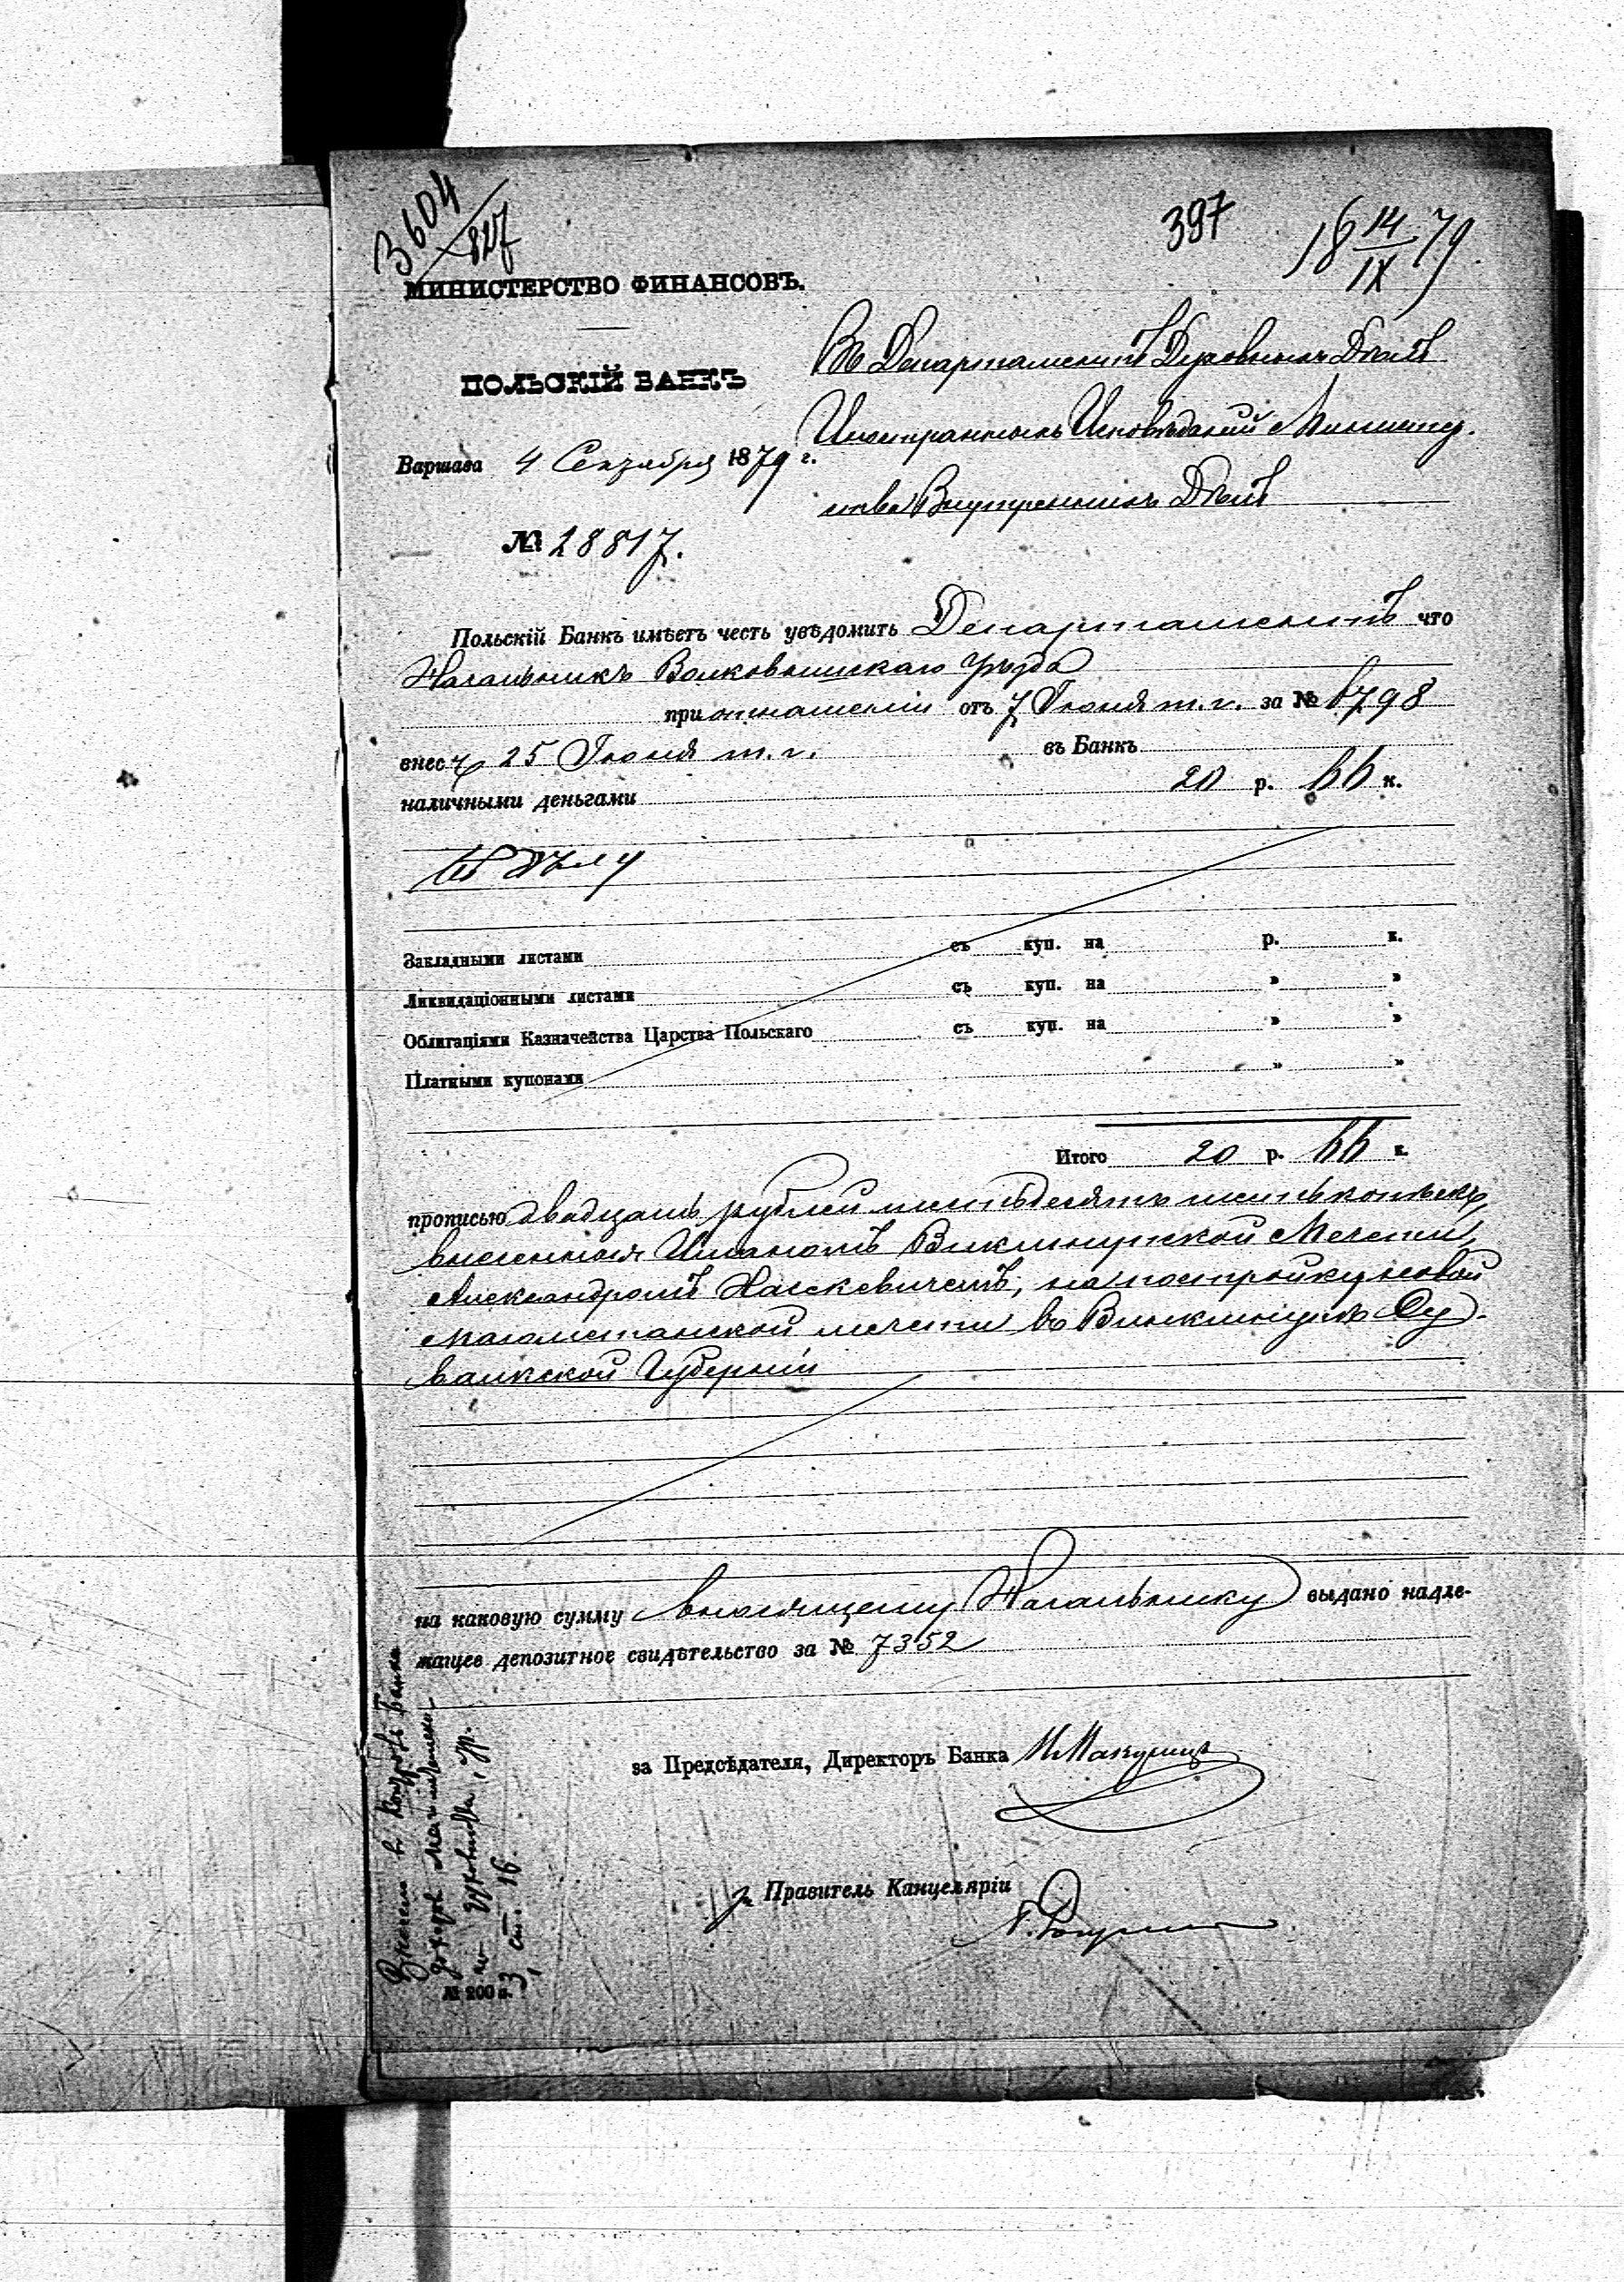 3604/827
397
18 14/IX 79.
МИНИСТЕРСТВО ФИНАНСОВЪ.
ПОЛЬСКІЙ БАНКЪ
Варшава 4 Сентября 1879 г.
№ 28817.
Въ Департаментъ Духовныхъ Дѣлъ
Иностранныхъ Исповѣданій Министер-
ства Внутреннихъ Дѣлъ
Польскій Банкъ имѣетъ честь увѣдомить Департаментъ что
Начальникъ Волковышскаго Уѣзда
при отношеніи отъ 7 Іюня т. г. за № 6798
внесъ 25 Іюня т. г. въ Банкъ
наличными деньгами 20 р. 66 к.
Къ дѣлу
Закладными листами съ куп. на р. к.
Ликвидаціонными листами съ куп. на » »
Облигаціями Казначейства Царства Польскаго съ куп. на » »
Платными купонами » »
Итого 20 р. 66 к.
прописью двадцать рублей шестьдесятъ шесть копѣекъ,
внесенныя Имамомъ Винкшнупской Мечети,
Александромъ Хаскевичемъ, на постройку новой
магометанской мечети въ Винкшнупѣ Су-
валкской Губерніи
на каковую сумму вносящему Начальнику выдано надле-
жащее депозитное свидѣтельство за № 7352
за Предсѣдателя, Директоръ Банка
за Правитель Канцеляріи
ст. 16.
№ 200 а.